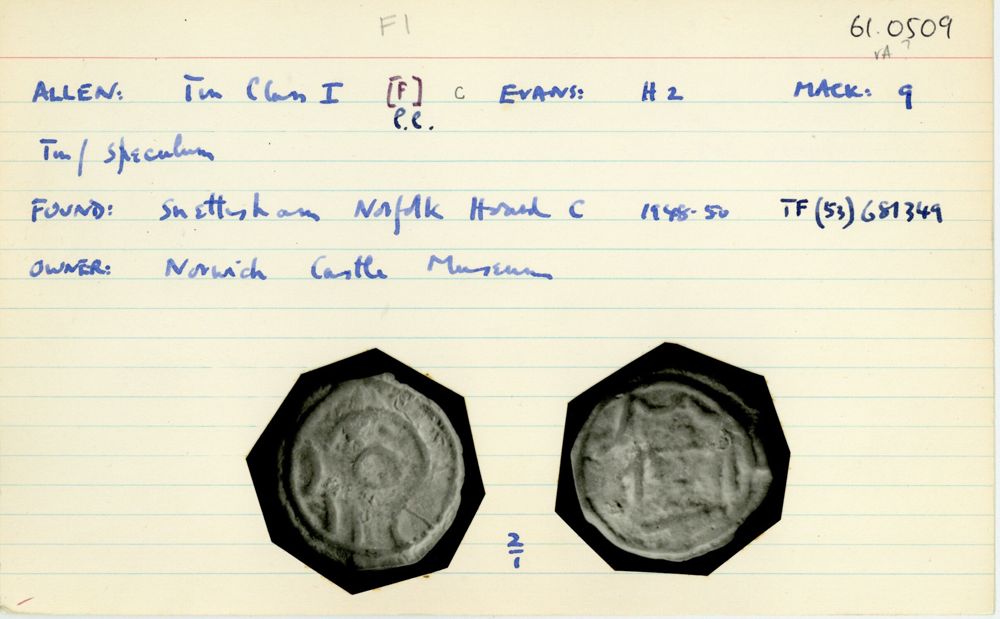 F1 61.0509
vA ?
ALLEN: Tin Class I [F] C EVANS: H2 MACK: 9
l.c.
Tin/ Speculum
FOUND: Snettisham Norfolk Hoard C 1948-50 TF (53) 681349
OWNER: Norwich Castle Museum
2
1